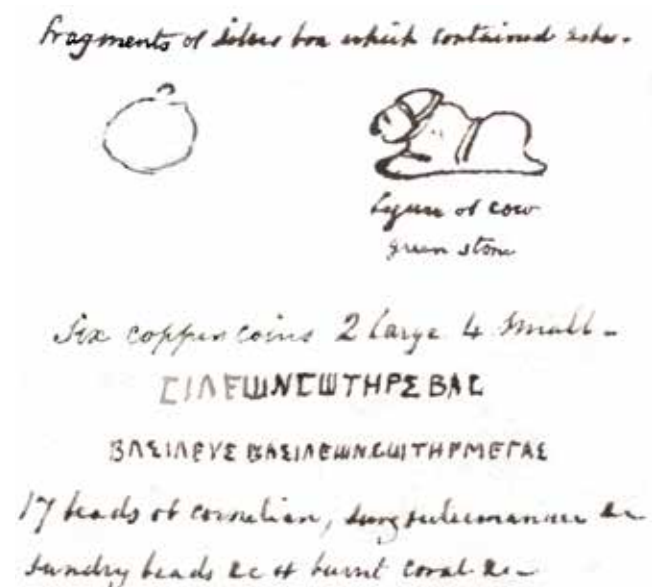 Fragments of silver box which contained ashes.
figure of cow
green stone
Six copper coins 2 large 4 small -
ϹΙΛΕШΝϹШΤΗΡΣ ΒΑϹ
ΒΑΣΙΛΕΥΣ ΒΑΣΙΛΕШΝϹШΤΗΡΜΕΓΑΣ
17 beads of cornelian, sung sulimannee &c
sundry beads &c of burnt coral &c -